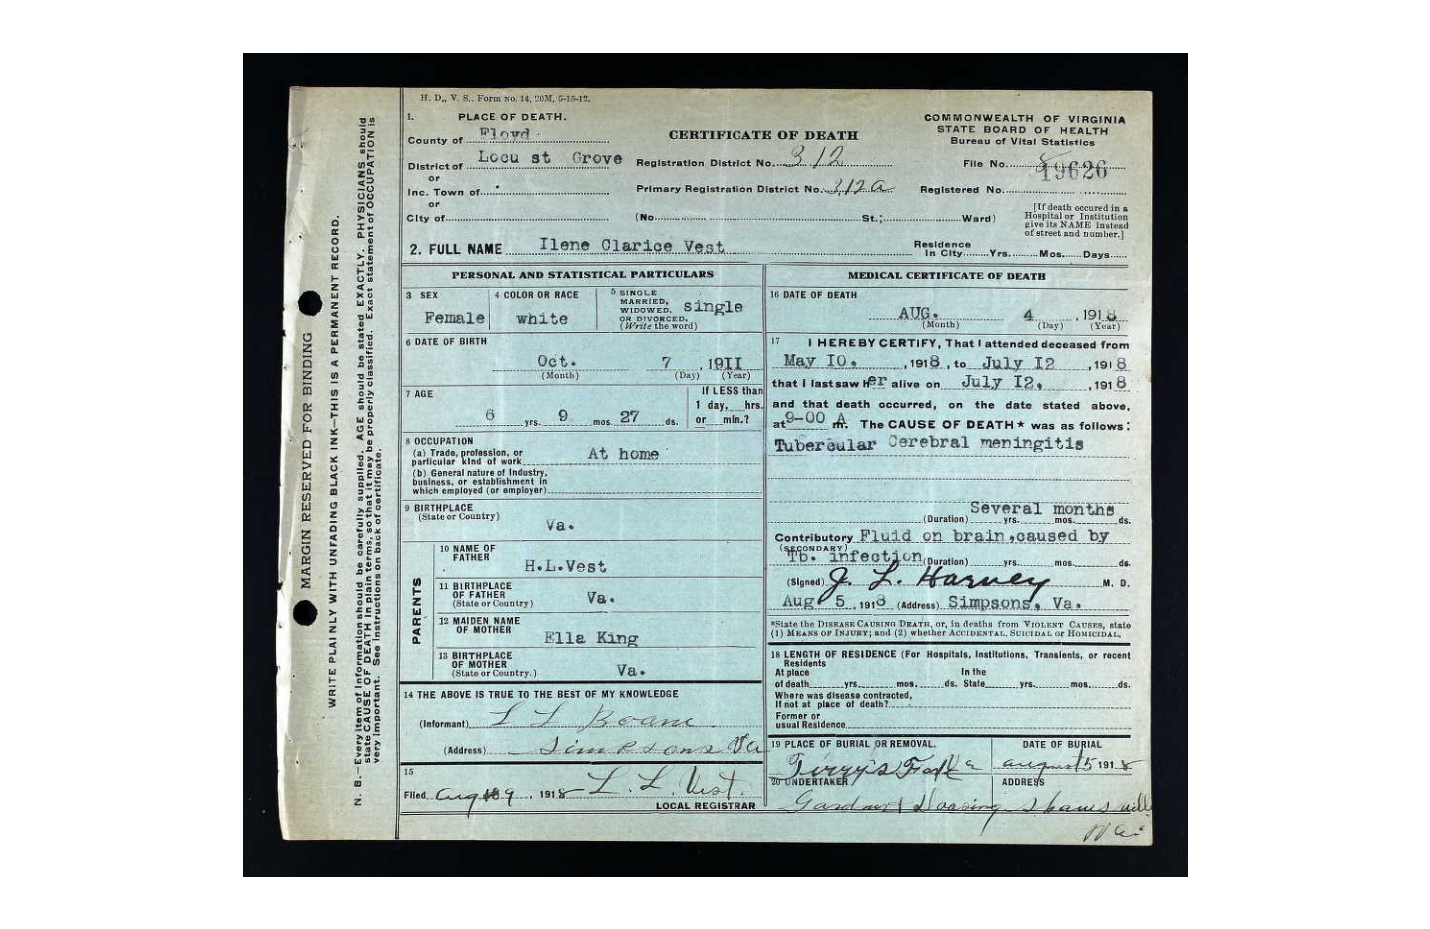 H. D., V. S., Form No. 14, 20M, 6-15-12.
1. PLACE OF DEATH.
County of Floyd
District of Locust Grove
or
Inc. Town of
or
City of
CERTIFICATE OF DEATH
Registration District No. 312
Primary Registration District No. 312a
(No. St.; Ward)
COMMONWEALTH OF VIRGINIA
STATE BOARD OF HEALTH
Bureau of Vital Statistics
File No. 19626
Registered No. 8
[If death occured in a
Hospital or Institution
give its NAME instead
of street and number.]
2. FULL NAME Ilene Clarice Vest
Residence
in City Yrs. Mos. Days
PERSONAL AND STATISTICAL PARTICULARS
3 SEX
Female
4 COLOR OR RACE
white
5 SINGLE
MARRIED,
WIDOWED,
OR DIVORCED.
(Write the word)
single
6 DATE OF BIRTH
Oct. 7, 1911
(Month) (Day) (Year)
7 AGE
6 yrs. 9 mos. 27 ds.
If LESS than
1 day, hrs.
or min.?
8 OCCUPATION
(a) Trade, profession, or
particular kind of work At home
(b) General nature of Industry,
business, or establishment in
which employed (or employer)
9 BIRTHPLACE
(State or Country)
Va.
PARENTS
10 NAME OF
FATHER
H.L.Vest
11 BIRTHPLACE
OF FATHER
(State or Country)
Va.
12 MAIDEN NAME
OF MOTHER
Ella King
13 BIRTHPLACE
OF MOTHER
(State or Country.)
Va.
14 THE ABOVE IS TRUE TO THE BEST OF MY KNOWLEDGE
(Informant) L L
(Address) Simpsons Va
15
Filed Aug 9, 1918 L. L. Vest.
LOCAL REGISTRAR
MEDICAL CERTIFICATE OF DEATH
16 DATE OF DEATH
AUG. 4, 1918
(Month) (Day) (Year)
17 I HEREBY CERTIFY, That I attended deceased from
May 10., 1918, to July 12, 1918
that I last saw her alive on July 12, 1918
and that death occurred, on the date stated above,
at 9-00 A m. The CAUSE OF DEATH* was as follows:
Tubercular Cerebral meningitis
Several months
(Duration) yrs. mos. ds.
Contributory Fluid on brain,caused by
(SECONDARY)
Tb. infection (Duration) yrs. mos. ds.
(Signed) J. L. Harvey M. D.
Aug 5, 1918 (Address) Simpsons, Va.
*State the DISEASE CAUSING DEATH, or, in deaths from VIOLENT CAUSES, state
(1) MEANS OF INJURY; and (2) whether ACCIDENTAL, SUICIDAL or HOMICIDAL.
18 LENGTH OF RESIDENCE (For Hospitals, Institutions, Transients, or recent
Residents
At place In the
of death yrs. mos. ds. State yrs. mos. ds.
Where was disease contracted,
If not at place of death?
Former or
usual Residence
19 PLACE OF BURIAL OR REMOVAL.
Va
DATE OF BURIAL
august 5 1918
20 UNDERTAKER
Gardner
ADDRESS
Va
MARGIN RESERVED FOR BINDING
WRITE PLAINLY WITH UNFADING BLACK INK—THIS IS A PERMANENT RECORD.
N. B.—Every item of information should be carefully supplied. AGE should be stated EXACTLY. PHYSICIANS should
state CAUSE OF DEATH in plain terms, so that it may be properly classified. Exact statement of OCCUPATION is
very important. See instructions on back of certificate.